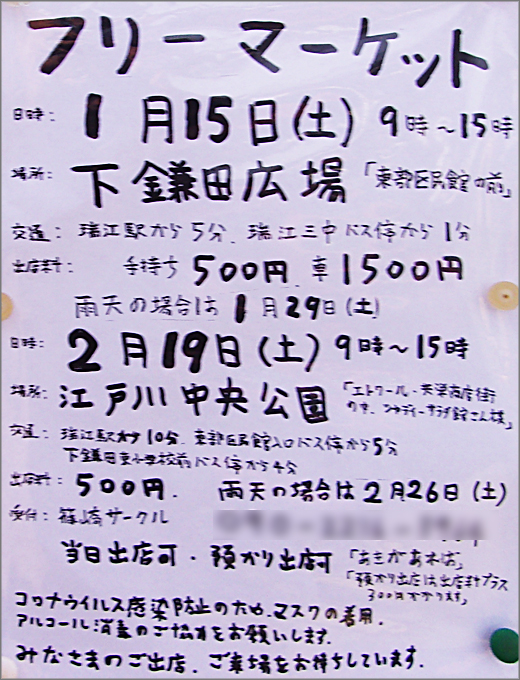 フリーマーケット
日時: 1月15日(土) 9時~15時
場所: 下鎌田広場「東部区民館の前」
交通: 瑞江駅から5分. 瑞江三中バス停から1分
出店料: 手持ち500円 車1500円
雨天の場合は1月29日(土)
日時: 2月19日(土) 9時~15時
場所: 江戸川中央公園「エトワール・天栄商店街
の中.
交通: 瑞江駅から10分. 東部区民館入口バス停から5分
下鎌田東小学校前バス停から4分
出店料: 500円. 雨天の場合は2月26日(土)
受付: 篠崎サークル
当日出店可・預かり出店可「あきがあれば」
「預かり出店は出店料プラス
300円かかります」
コロナウイルス感染防止のため.マスクの着用.
アルコール消毒のご協力をお願いします.
みなさまのご出店.ご来場をお待ちしています.